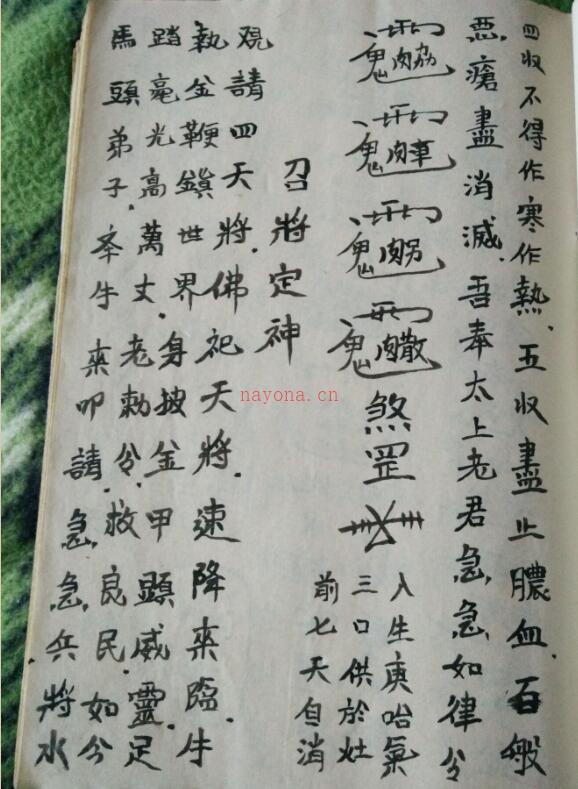 四収不得作寒作熱.五収盡止膿血.百般
惡瘡盡消滅.吾奉太上老君急急如律令
煞罡
入生庚哈氣
三口供於灶
前七天自消
召將定神
观請四天將.佛祀天將.速降來臨.牛
執金鞭鎮世界身披金甲顯威靈.足
踏毫光高萬丈.老勅令.救良民.如令
馬頭弟子.奉牛來叩請.急.急.兵將水
nayona.cn